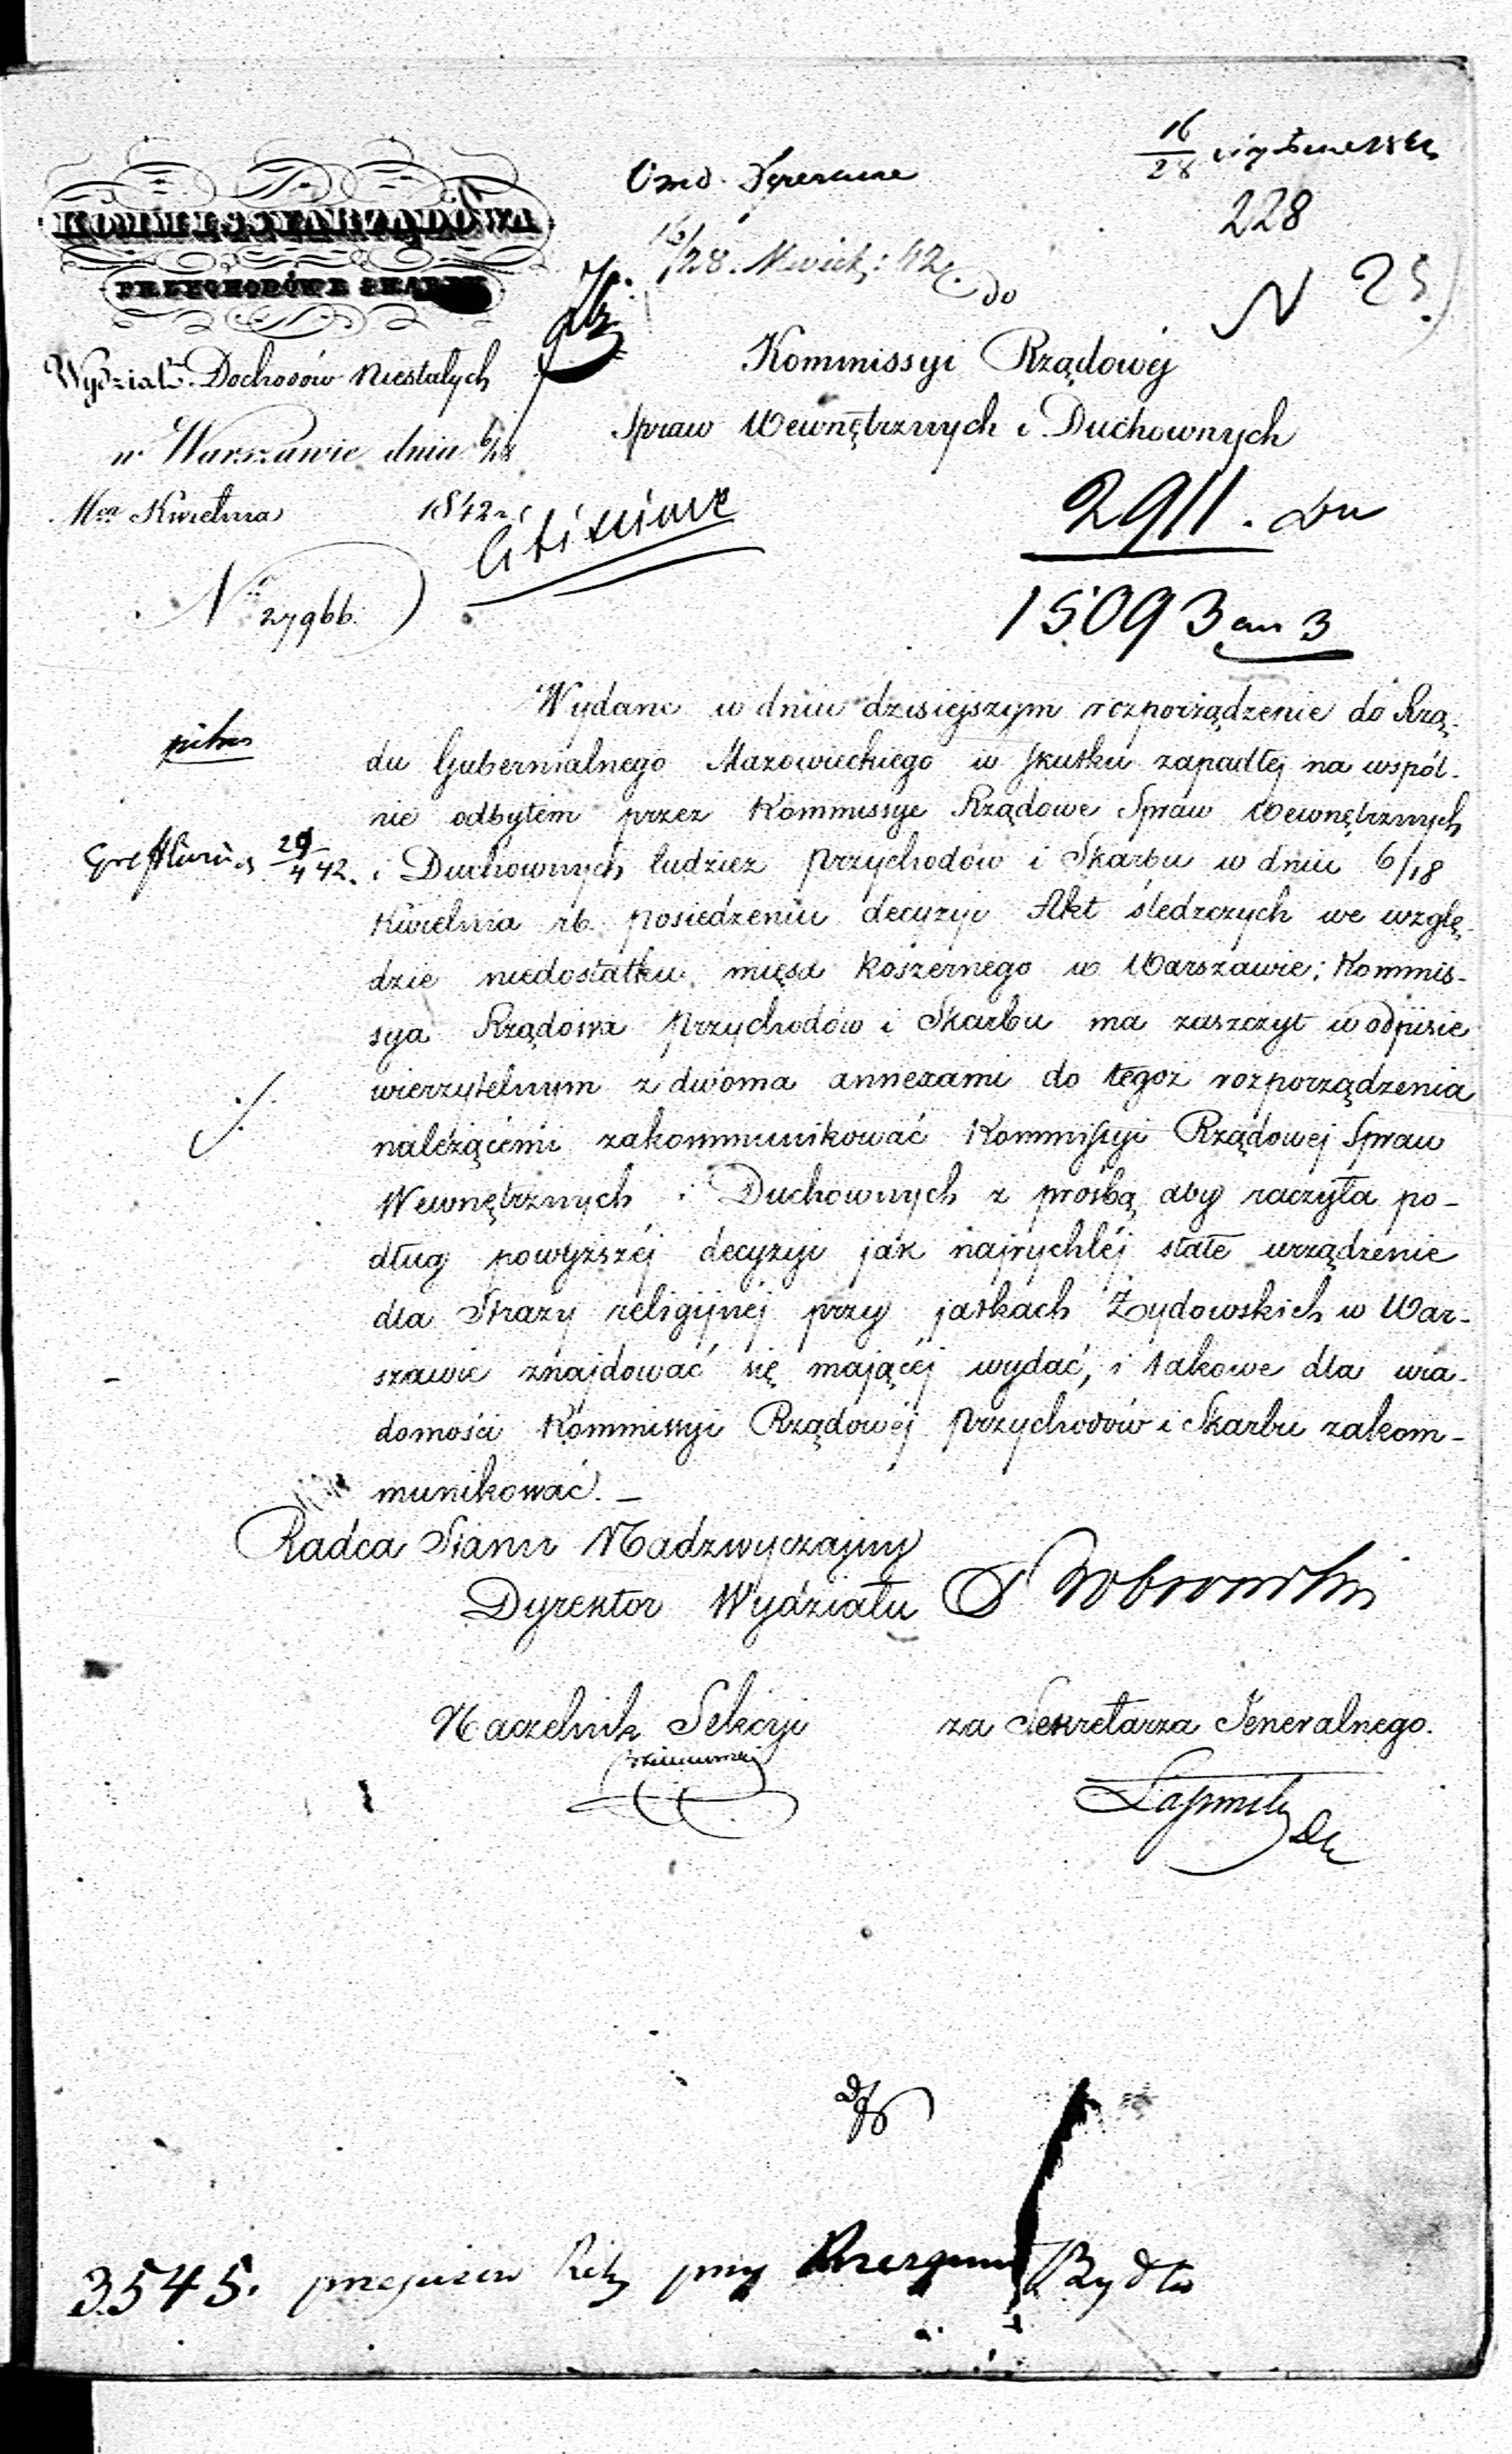 16/28
228
16/28 42
do
N 25
KOMMISSYA RZĄDOWA
PRZYCHODÓW I SKARBU
Wydział Dochodów Niestałych
w Warszawie dnia 6/18
Mca Kwietnia 1842 r.
No 27966.
Kommissyi Rządowéj
Spraw Wewnętrznych i Duchownych
2911.
15093
Wydane w dniu dzisiejszym rozporządzenie do Rzą-
du Gubernialnego Mazowieckiego w skutku zapadłej na wspól-
nie odbytem przez Kommissye Rządowe Spraw Wewnętrznych
29/4 42.
i Duchownych tudzież Przychodów i Skarbu w dniu 6/18
Kwietnia rb. posiedzeniu decyzyi Akt śledczych we wzglę-
dzie niedostatku mięsa koszernego w Warszawie; Kommis-
sya Rządowa Przychodów i Skarbu ma zaszczyt w odpisie
wierzytelnym z dwoma annexami do tegoż rozporządzenia
należącemi zakommunikować Kommissyi Rządowej Spraw
Wewnętrznych i Duchownych z prośbą aby raczyła po-
dług powyższéj decyzyi jak najrychléj stałe urządzenie
dla Straży religijnej przy jatkach Żydowskich w War-
szawie znajdować się mającéj wydać, i takowe dla wia-
domości Kommissyi Rządowéj Przychodów i Skarbu zakom-
munikować. —
Radca Stanu Nadzwyczajny
Dyrektor Wydziału
Naczelnik Sekcyi
za Sekretarza Jeneralnego.
3545. przy Bydła